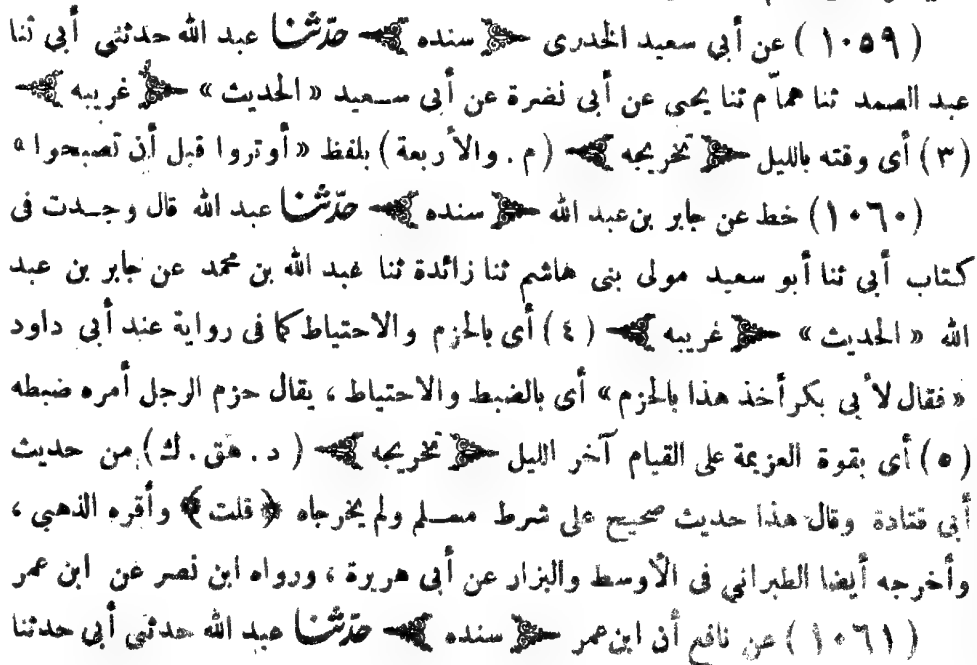 (١٠٥٩) عن أبي سعيد الخدرى سنده حدّثنا عبد الله حدثني أبي ثنا
عبد الصمد ثنا همّام ثنا يحيى عن أبى نضرة عن أبى سعيد «الحديث» غريبه
(٣) أى وقته بالليل تخريجه (م . والأربعة) بلفظ «أوتروا قبل أن تصبحوا»
(١٠٦٠) خط عن جابر بن عبد الله سنده حدّثنا عبد الله قال وجدت فى
كتاب أبي ثنا أبو سعيد مولى بنى هاشم ثنا زائدة ثنا عبد الله بن محمد عن جابر بن عبد
الله «الحديث» غريبه (٤) أى بالحزم والاحتياط كما فى رواية عند أبي داود
«فقال لأبى بكر أخذ هذا بالحزم» أى بالضبط والاحتياط ، يقال حزم الرجل أمره ضبطه
(٥) أى بقوة العزيمة على القيام آخر الليل تخريجه (د . هق . ك) من حديث
أبي قتادة وقال هذا حديث صحيح على شرط مسلم ولم يخرجاه ﴿قلت﴾ وأقره الذهبي ،
وأخرجه أيضا الطبراني فى الأوسط والبزار عن أبى هريرة ، ورواه ابن نصر عن ابن عمر
(١٠٦١) عن نافع أن ابن عمر سنده حدّثنا عبد الله حدثنى أبي حدثنا